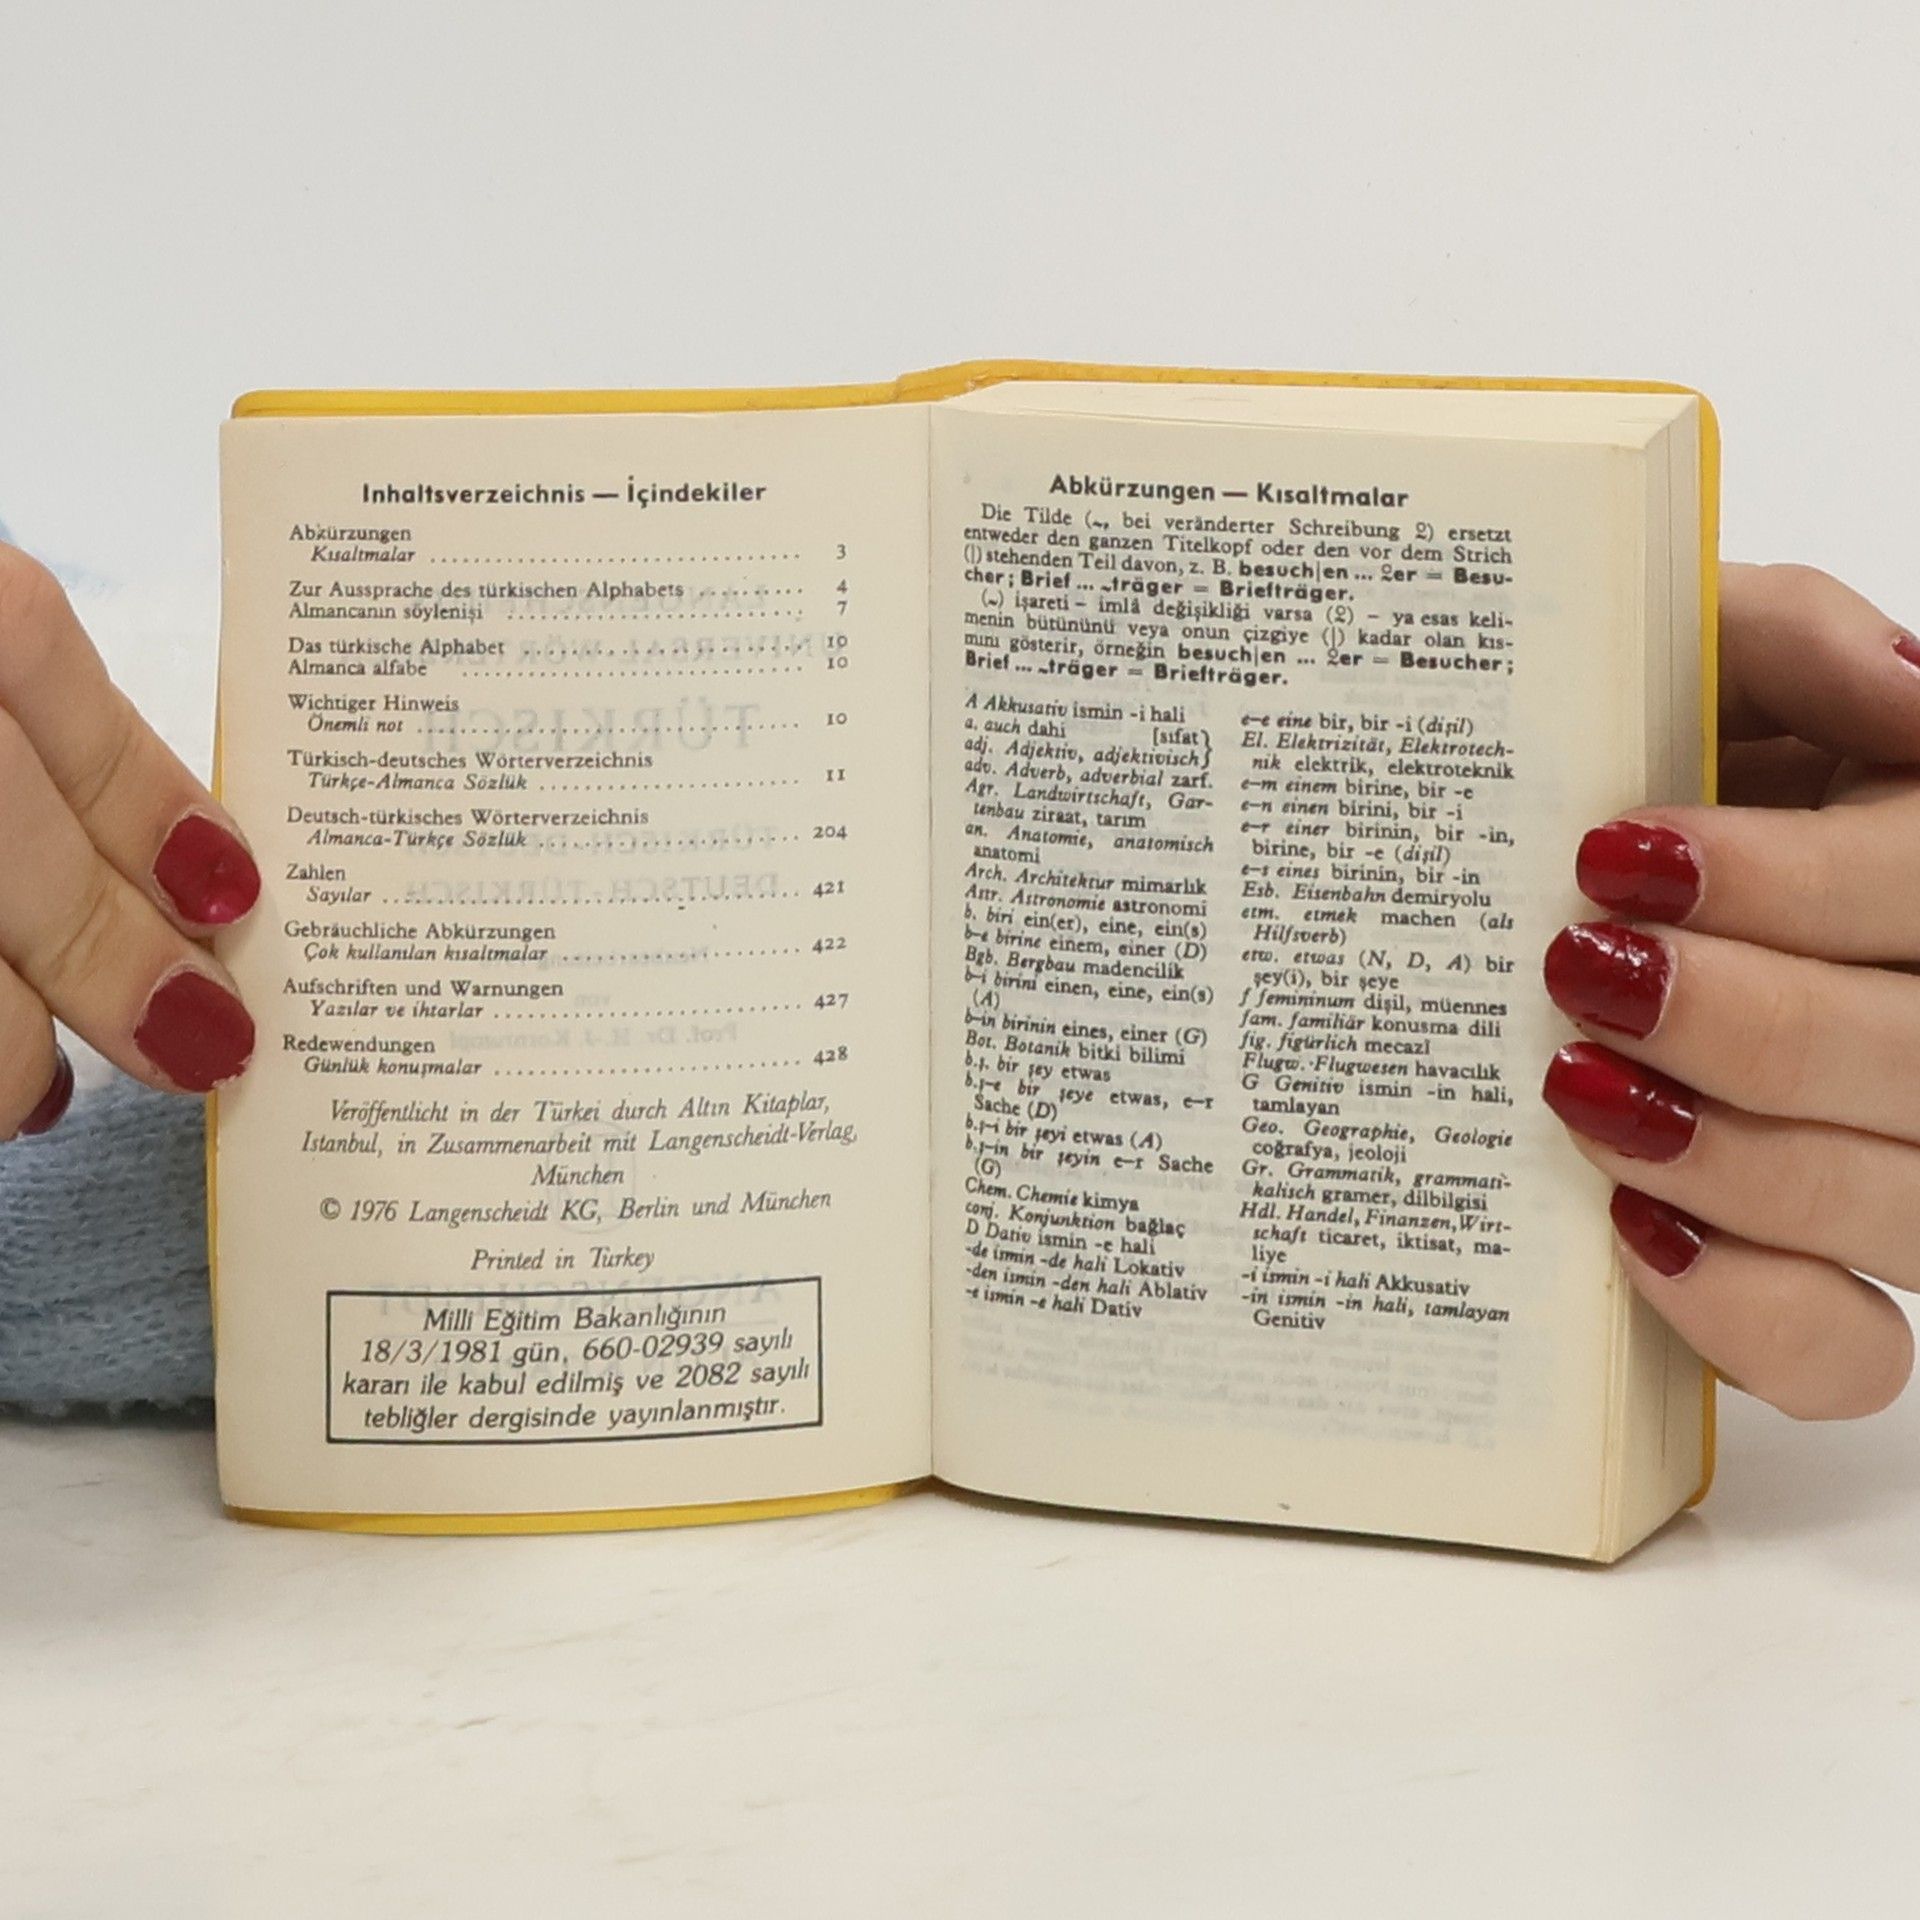 Inhaltsverzeichnis — İçindekiler
Abkürzungen
Kısaltmalar ................................ 3
Zur Aussprache des türkischen Alphabets .......... 4
Almancanın söylenişi ............................ 7
Das türkische Alphabet .......................... 10
Almanca alfabe .............................. 10
Wichtiger Hinweis
Önemli not .................................. 10
Türkisch-deutsches Wörterverzeichnis
Türkçe-Almanca Sözlük ........................ 11
Deutsch-türkisches Wörterverzeichnis
Almanca-Türkçe Sözlük ........................ 204
Zahlen
Sayılar ...................................... 421
Gebräuchliche Abkürzungen
Çok kullanılan kısaltmalar ...................... 422
Aufschriften und Warnungen
Yazılar ve ihtarlar ............................ 427
Redewendungen
Günlük konuşmalar ............................ 428
Veröffentlicht in der Türkei durch Altın Kitaplar,
Istanbul, in Zusammenarbeit mit Langenscheidt-Verlag,
München
© 1976 Langenscheidt KG, Berlin und München
Printed in Turkey
Milli Eğitim Bakanlığının
18/3/1981 gün, 660-02939 sayılı
kararı ile kabul edilmiş ve 2082 sayılı
tebliğler dergisinde yayınlanmıştır.
Abkürzungen — Kısaltmalar
Die Tilde (~, bei veränderter Schreibung ♀) ersetzt
entweder den ganzen Titelkopf oder den vor dem Strich
(|) stehenden Teil davon, z. B. besuch|en ... ♀er = Besu-
cher; Brief ... ~träger = Briefträger.
(~) işareti – imlâ değişikliği varsa (♀) – ya esas keli-
menin bütününü veya onun çizgiye (|) kadar olan kıs-
mını gösterir, örneğin besuch|en ... ♀er = Besucher;
Brief ... ~träger = Briefträger.
A Akkusativ ismin -i hali
a. auch dahi [sıfat}
adj. Adjektiv, adjektivisch}
adv. Adverb, adverbial zarf.
Agr. Landwirtschaft, Gar-
tenbau ziraat, tarım
an. Anatomie, anatomisch
anatomi
Arch. Architektur mimarlık
Astr. Astronomie astronomi
b. biri ein(er), eine, ein(s)
b-e birine einem, einer (D)
Bgb. Bergbau madencilik
b-i birini einen, eine, ein(s)
(A)
b-in birinin eines, einer (G)
Bot. Botanik bitki bilimi
b.ş. bir şey etwas
b.ş-e bir şeye etwas, e-r
Sache (D)
b.ş-i bir şeyi etwas (A)
b.ş-in bir şeyin e-r Sache
(G)
Chem. Chemie kimya
conj. Konjunktion bağlaç
D Dativ ismin -e hali
-de ismin -de hali Lokativ
-den ismin -den hali Ablativ
-e ismin -e hali Dativ
e-e eine bir, bir -i (dişil)
El. Elektrizität, Elektrotech-
nik elektrik, elektroteknik
e-m einem birine, bir -e
e-n einen birini, bir -i
e-r einer birinin, bir -in,
birine, bir -e (dişil)
e-s eines birinin, bir -in
Esb. Eisenbahn demiryolu
etm. etmek machen (als
Hilfsverb)
etw. etwas (N, D, A) bir
şey(i), bir şeye
f femininum dişil, müennes
fam. familiär konusma dili
fig. figürlich mecazî
Flugw. Flugwesen havacılık
G Genitiv ismin -in hali,
tamlayan
Geo. Geographie, Geologie
coğrafya, jeoloji
Gr. Grammatik, grammati-
kalisch gramer, dilbilgisi
Hdl. Handel, Finanzen, Wirt-
schaft ticaret, iktisat, ma-
liye
-i ismin -i hali Akkusativ
-in ismin -in hali, tamlayan
Genitiv